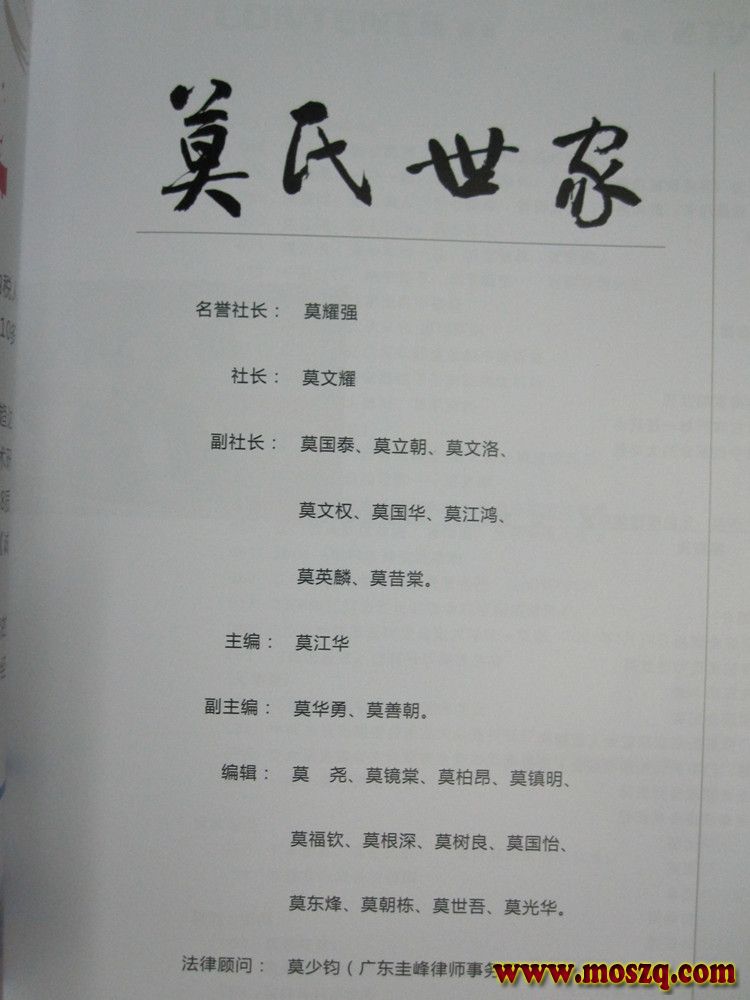 莫氏世家
名誉社长： 莫耀强
社长： 莫文耀
副社长： 莫国泰、莫立朝、莫文洛、
莫文权、莫国华、莫江鸿、
莫英麟、莫昔棠。
主编： 莫江华
副主编： 莫华勇、莫善朝。
编辑： 莫　尧、莫镜棠、莫柏昂、莫镇明、
莫福钦、莫根深、莫树良、莫国怡、
莫东烽、莫朝栋、莫世吾、莫光华。
法律顾问： 莫少钧（广东圭峰律师事务
www.moszq.com